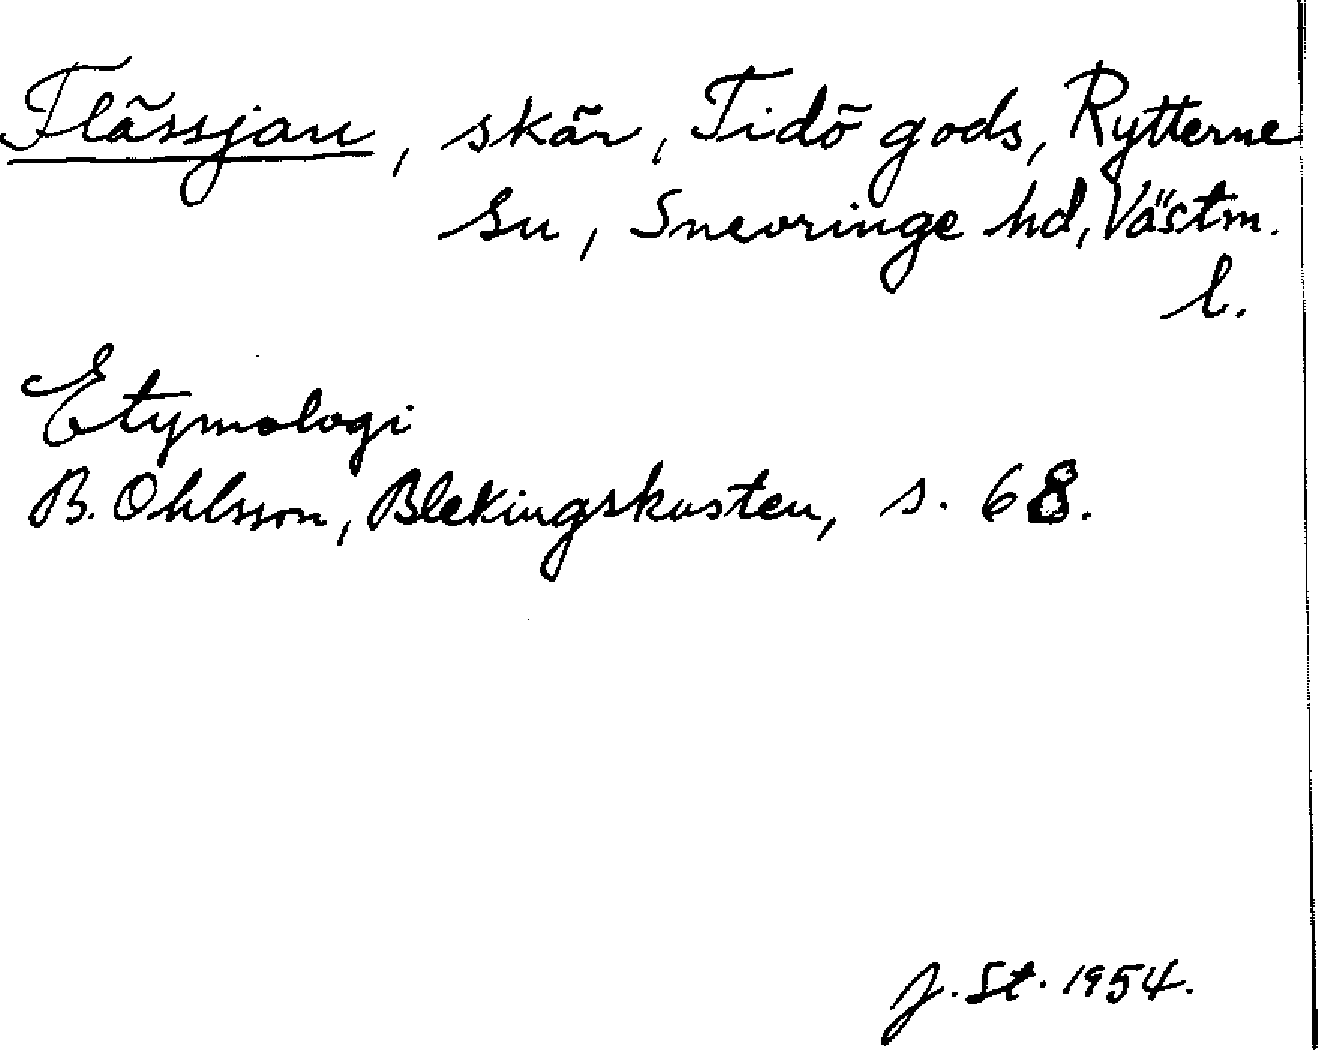 Flässjan, skär, Tidö gods, Rytterne
sn, Snevringe hd, Västm.
l.
Etymologi
B. Ohlsson, Blekingskusten, s. 68.
J. St. 1954.